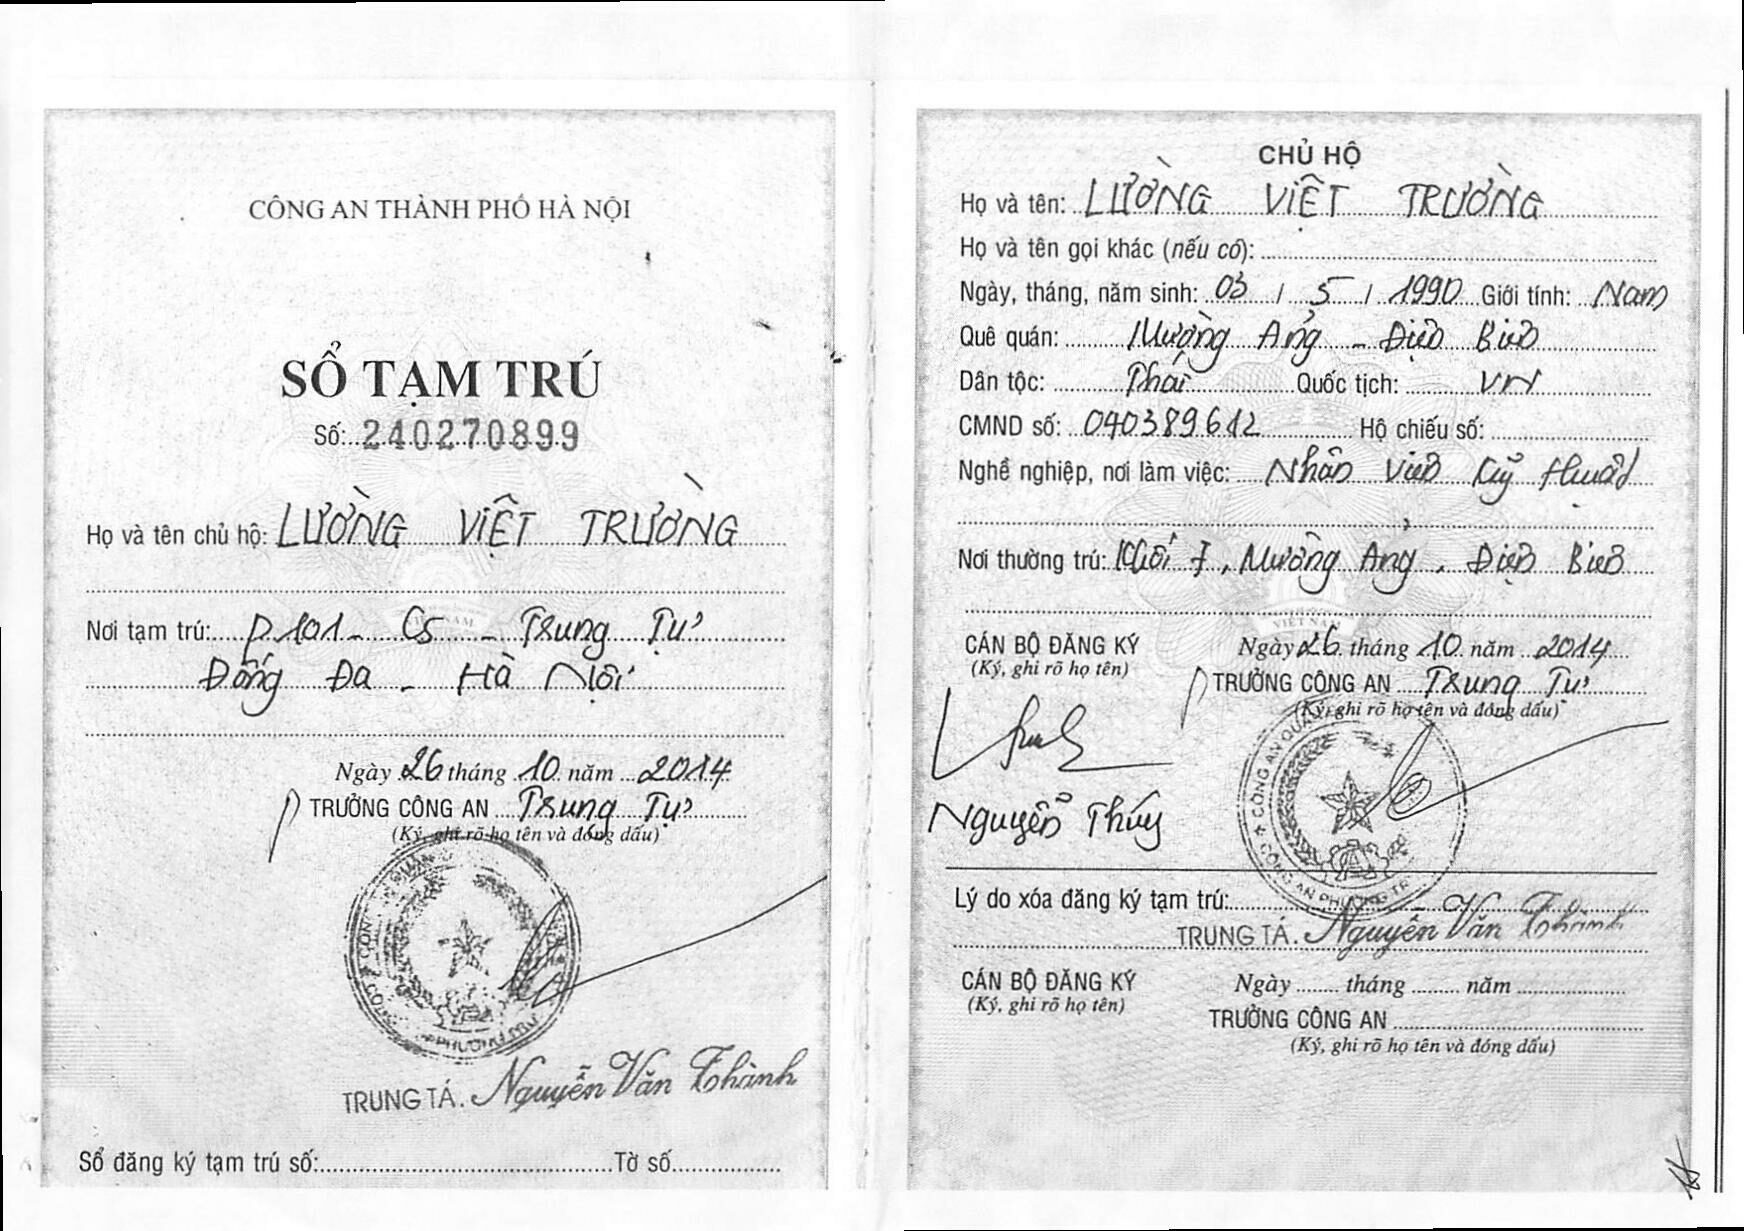 CÔNG AN THÀNH PHỐ HÀ NỘI
SỔ TẠM TRÚ
Số: 240270899
Họ và tên chủ hộ: LƯỜNG VIỆT TRƯỜNG
Nơi tạm trú: P.101 - C5 - Trung Tự
Đống Đa - Hà Nội
Ngày 26 tháng 10 năm 2014
TRƯỞNG CÔNG AN Trung Tự
(Ký, ghi rõ họ tên và đóng dấu)
TRUNG TÁ. Nguyễn Văn Thành
Sổ đăng ký tạm trú số: Tờ số
CHỦ HỘ
Họ và tên: LƯỜNG VIỆT TRƯỜNG
Họ và tên gọi khác (nếu có):
Ngày, tháng, năm sinh: 03 / 5 / 1990 Giới tính: Nam
Quê quán: Mường Ảng - Điện Biên
Dân tộc: Thái Quốc tịch: VN
CMND số: 040389612 Hộ chiếu số:
Nghề nghiệp, nơi làm việc: Nhân viên kỹ thuật
Nơi thường trú: Khối I, Mường Ảng, Điện Biên
CÁN BỘ ĐĂNG KÝ
(Ký, ghi rõ họ tên)
Nguyễn Thúy
Ngày 26 tháng 10 năm 2014
TRƯỞNG CÔNG AN Trung Tự
(Ký, ghi rõ họ tên và đóng dấu)
Lý do xóa đăng ký tạm trú:
TRUNG TÁ. Nguyễn Văn Thành
CÁN BỘ ĐĂNG KÝ
(Ký, ghi rõ họ tên)
Ngày tháng năm
TRƯỞNG CÔNG AN
(Ký, ghi rõ họ tên và đóng dấu)